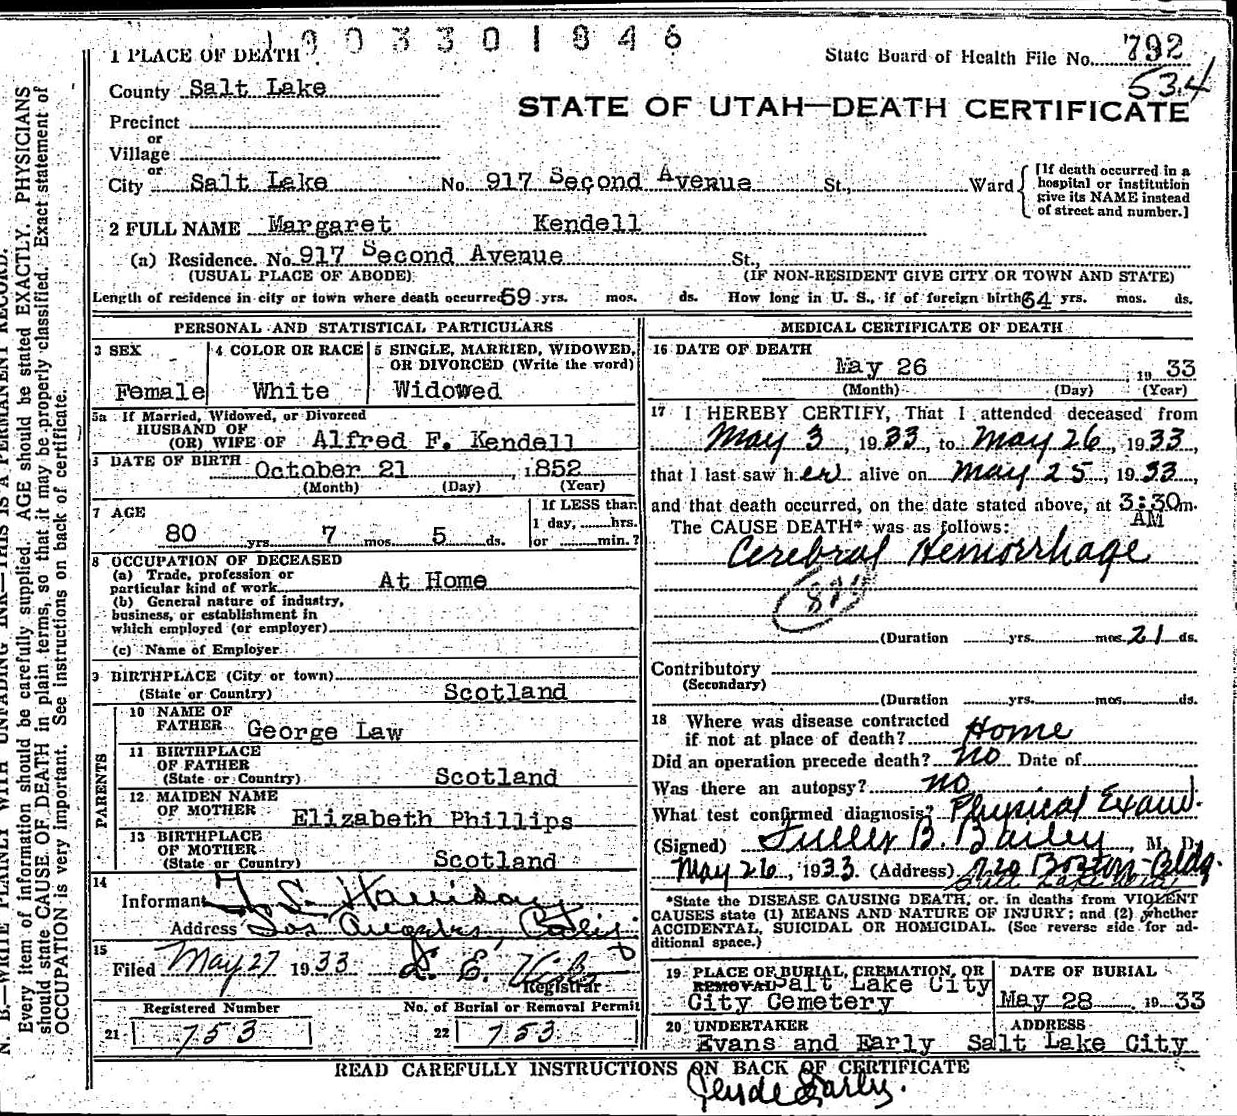 1903301846
1 PLACE OF DEATH
State Board of Health File No. 792
534
County Salt Lake
STATE OF UTAH—DEATH CERTIFICATE
Precinct
or
Village
or
City Salt Lake No. 917 Second Avenue St., Ward
[If death occurred in a
hospital or institution
give its NAME instead
of street and number.]
2 FULL NAME Margaret Kendell
(a) Residence. No. 917 Second Avenue St.,
(USUAL PLACE OF ABODE) (IF NON-RESIDENT GIVE CITY OR TOWN AND STATE)
Length of residence in city or town where death occurred 59 yrs. mos. ds. How long in U. S., if of foreign birth 64 yrs. mos. ds.
PERSONAL AND STATISTICAL PARTICULARS
3 SEX
Female
4 COLOR OR RACE
White
5 SINGLE, MARRIED, WIDOWED,
OR DIVORCED (Write the word)
Widowed
5a If Married, Widowed, or Divorced
HUSBAND OF
(OR) WIFE OF Alfred F. Kendell
DATE OF BIRTH October 21 1852
(Month) (Day) (Year)
7 AGE
80 yrs. 7 mos. 5 ds.
If LESS than
1 day, hrs.
or min.?
8 OCCUPATION OF DECEASED
(a) Trade, profession or
particular kind of work At Home
(b) General nature of industry,
business, or establishment in
which employed (or employer)
(c) Name of Employer
9 BIRTHPLACE (City or town)
(State or Country) Scotland
PARENTS
10 NAME OF
FATHER George Law
11 BIRTHPLACE
OF FATHER
(State or Country) Scotland
12 MAIDEN NAME
OF MOTHER Elizabeth Phillips
13 BIRTHPLACE
OF MOTHER
(State or Country) Scotland
14
Informant Harrison
Address Los Angeles, Calif
15
Filed May 27 1933 L. E.
Registrar
Registered Number No. of Burial or Removal Permit
21 753 22 753
MEDICAL CERTIFICATE OF DEATH
16 DATE OF DEATH
May 26 1933
(Month) (Day) (Year)
17 I HEREBY CERTIFY, That I attended deceased from
May 3, 1933, to May 26, 1933,
that I last saw her alive on May 25, 1933,
and that death occurred, on the date stated above, at 3:30 m.
AM
The CAUSE DEATH* was as follows:
Cerebral Hemorrhage
(Duration yrs. mos. 21 ds.
Contributory
(Secondary)
(Duration yrs. mos. ds.
18 Where was disease contracted
if not at place of death? Home
Did an operation precede death? no Date of
Was there an autopsy? no
What test confirmed diagnosis? Physical Exam.
(Signed) Fuller B. Bailey, M. D.
May 26, 1933. (Address) Boston Bldg.
Salt Lake City
*State the DISEASE CAUSING DEATH, or, in deaths from VIOLENT
CAUSES state (1) MEANS AND NATURE OF INJURY; and (2) whether
ACCIDENTAL, SUICIDAL OR HOMICIDAL. (See reverse side for ad-
ditional space.)
19 PLACE OF BURIAL, CREMATION, OR
REMOVAL Salt Lake City
City Cemetery
DATE OF BURIAL
May 28 1933
20 UNDERTAKER ADDRESS
Evans and Early Salt Lake City
READ CAREFULLY INSTRUCTIONS ON BACK OF CERTIFICATE
N. B.—WRITE PLAINLY WITH UNFADING INK—THIS IS A PERMANENT RECORD.
Every item of information should be carefully supplied. AGE should be stated EXACTLY. PHYSICIANS
should state CAUSE OF DEATH in plain terms, so that it may be properly classified. Exact statement of
OCCUPATION is very important. See instructions on back of certificate.